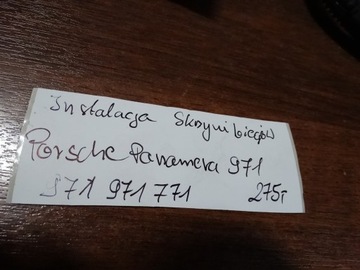 Instalacja Skrzyni biegów
Porsche Panamera 971
971 971 771 275,-